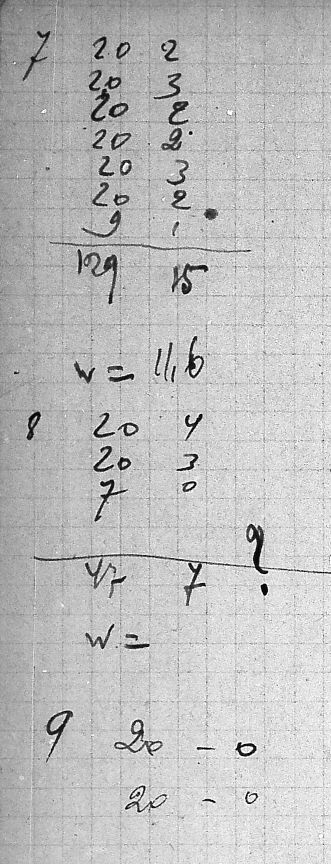 7 20 2
20 3
20 2
20 2
20 3
20 2
9 1
129 15
W = 11,6
8 20 4
20 3
7 0
47 7 ?
W. =
9 20 - 0
20 - 0